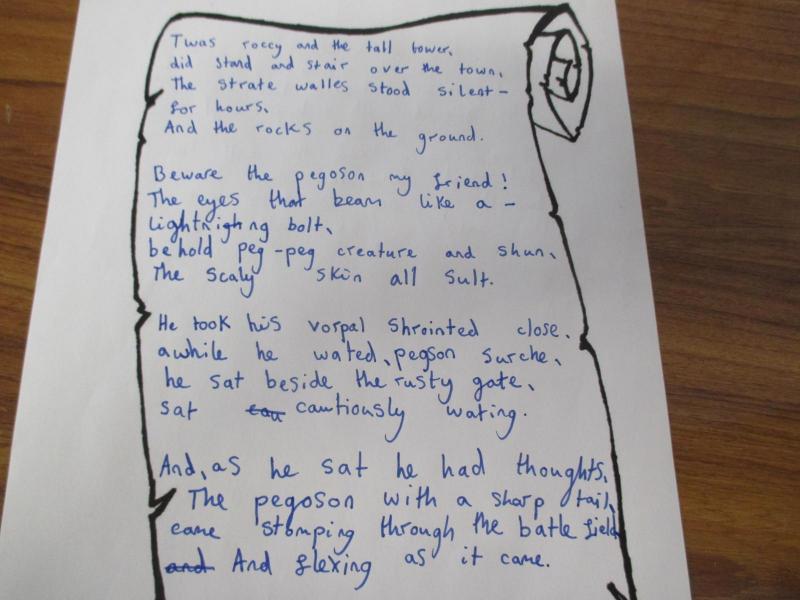 Twas roccy and the tall tower,
did stand and stair over the town,
The strate walles stood silent -
for hours,
And the rocks on the ground.
Beware the pegoson my friend!
The eyes that beam like a -
lightnighng bolt,
behold peg-peg creature and shun,
The scaly skin all sult.
He took his vorpal shrointed close,
awhile he wated, pegson surche,
he sat beside the rusty gate,
sat cautiously wating.
And, as he sat he had thoughts,
The pegoson with a sharp tail,
came stomping through the batle field
and And flexing as it came.